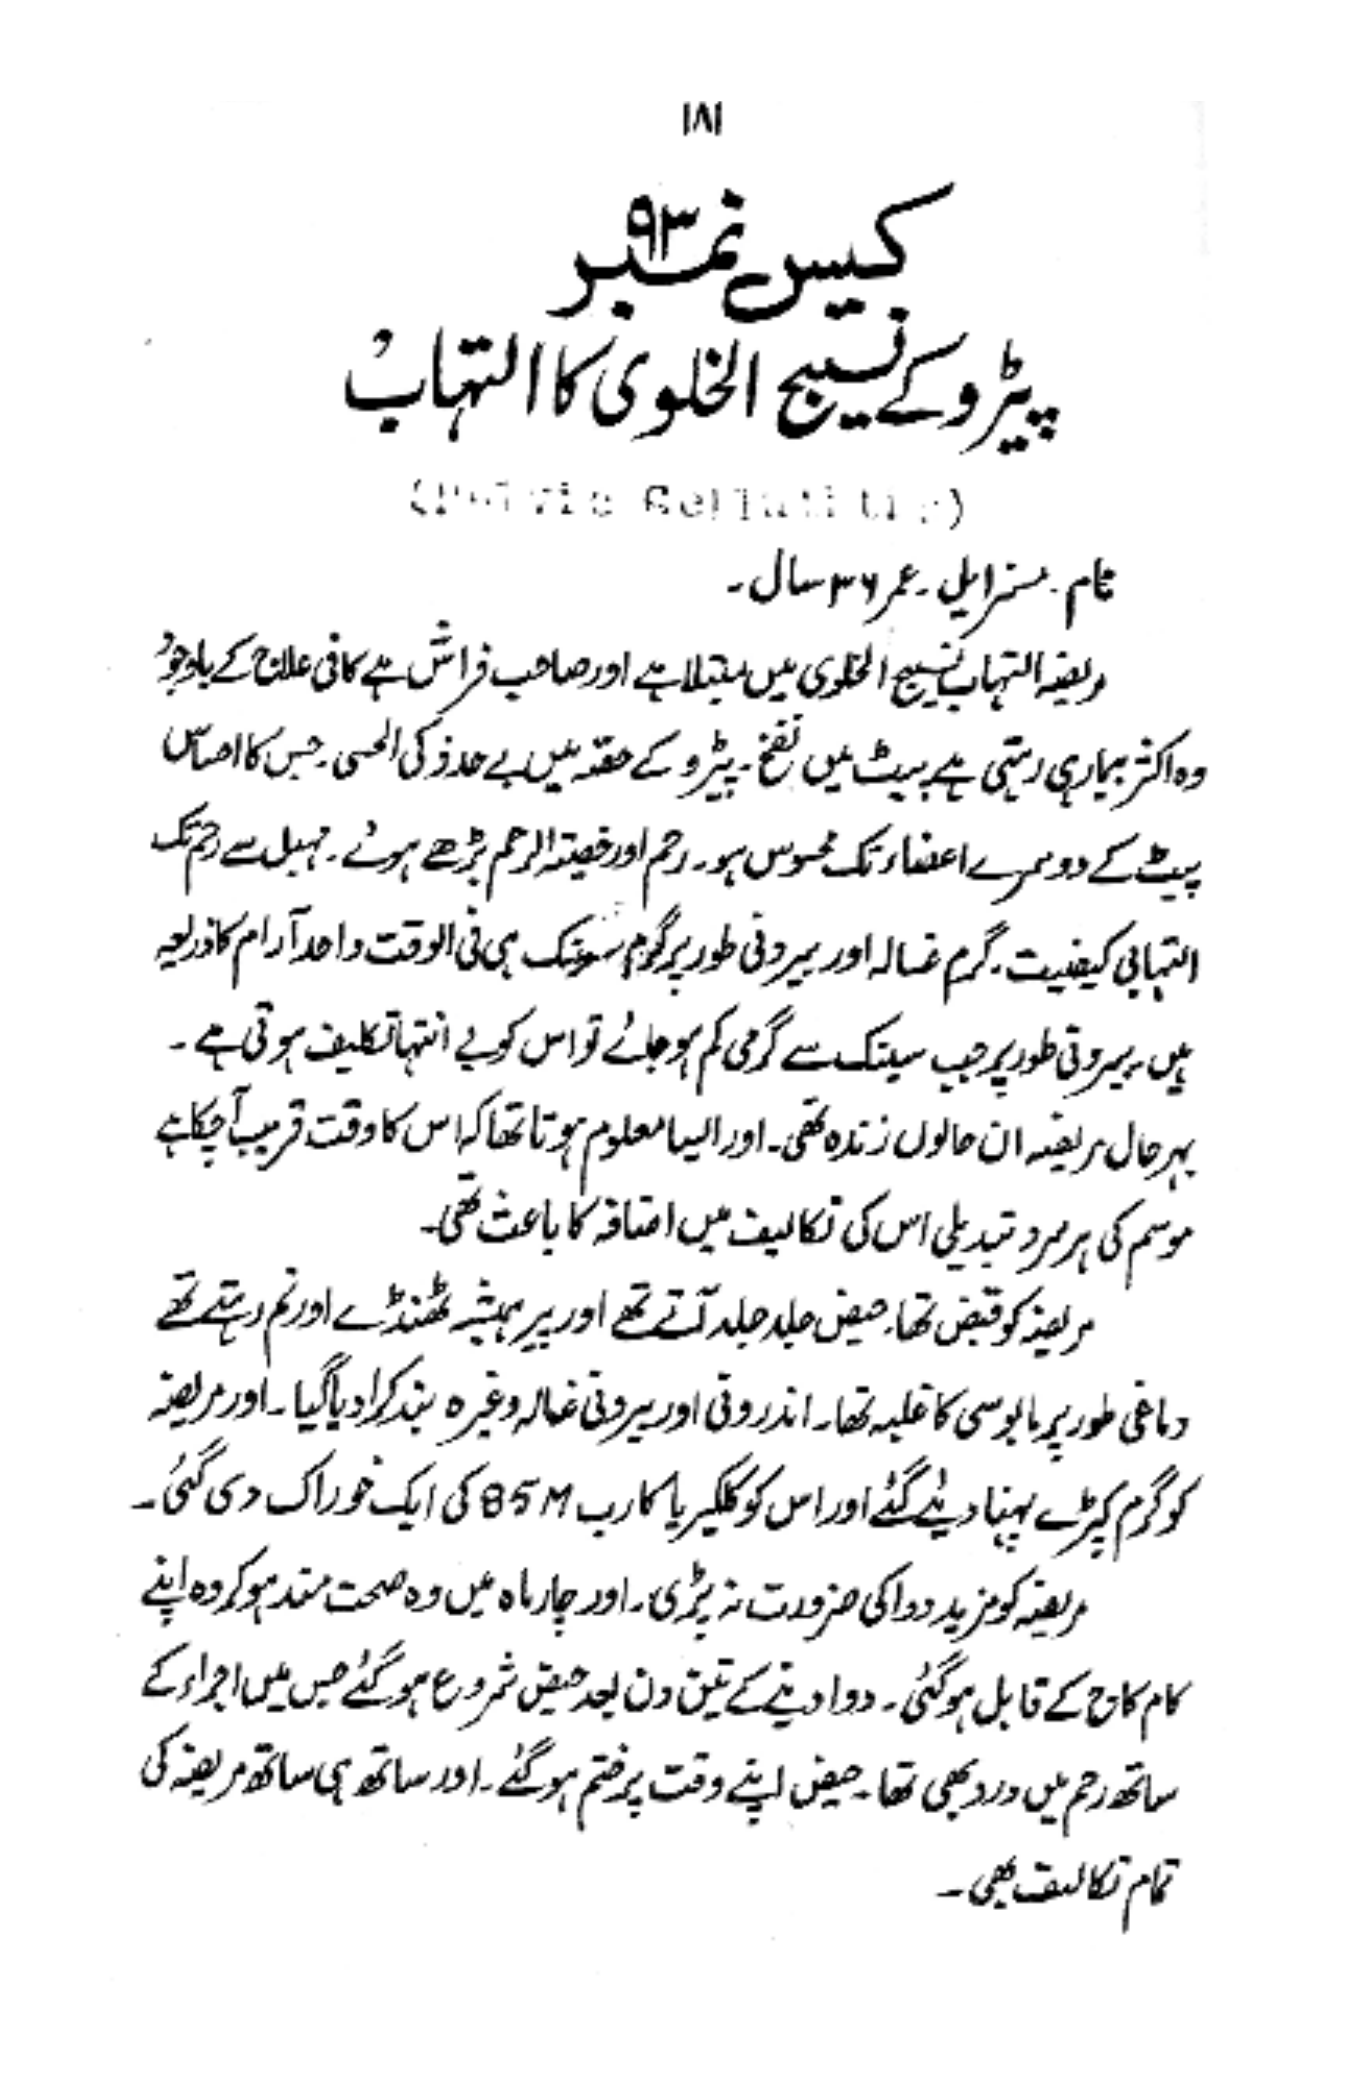 ۱۸۱
کیس نمبر ۹۳
پیڑو کے نسیج الخلوی کا التہاب
(Pelvic Cellulitis)
نام۔ مسز ایل۔ عمر ۳۶ سال۔
مریضہ التہاب نسیج الخلوی میں مبتلا ہے اور صاحب فراش ہے کافی علاج کے باوجود
وہ اکثر بیمار ہی رہتی ہے پیٹ میں نفخ۔ پیڑو کے حصّہ میں بے حد ذکی الحسی۔ جس کا احساس
پیٹ کے دوسرے اعضاء تک محسوس ہو۔ رحم اور خصیتہ الرحم بڑھے ہوئے۔ مہبل سے رحم تک
التہابی کیفیت۔ گرم غسالہ اور بیرونی طور پر گرم سینک ہی فی الوقت واحد آرام کا ذریعہ
ہیں۔ بیرونی طور پر جب سینک سے گرمی کم ہو جائے تو اس کو بے انتہا تکلیف ہوتی ہے۔
بہر حال مریضہ ان حالوں زندہ تھی۔ اور ایسا معلوم ہوتا تھا کہ اس کا وقت قریب آچکا ہے
موسم کی ہر سرد تبدیلی اس کی تکالیف میں اضافہ کا باعث تھی۔
مریضہ کو قبض تھا۔ حیض جلد جلد آتے تھے اور پیر ہمیشہ ٹھنڈے اور نم رہتے تھے
دماغی طور پر مایوسی کا غلبہ تھا۔ اندرونی اور بیرونی غسالہ وغیرہ بند کرا دیا گیا۔ اور مریضہ
کو گرم کپڑے پہنا دیئے گئے اور اس کو کلکیریا کارب 85M کی ایک خوراک دی گئی۔
مریضہ کو مزید دوا کی ضرورت نہ پڑی۔ اور چار ماہ میں وہ صحت مند ہو کر وہ اپنے
کام کاج کے قابل ہو گئی۔ دوا دینے کے تین دن بعد حیض شروع ہو گئے جس میں اجراء کے
ساتھ رحم میں درد بھی تھا۔ حیض اپنے وقت پر ختم ہو گئے۔ اور ساتھ ہی ساتھ مریضہ کی
تمام تکالیف بھی۔